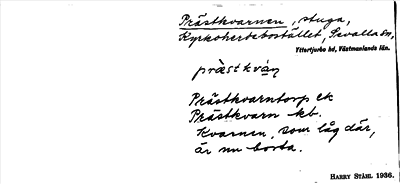 Prästkvarnen, stuga,
Kyrkoherdebostället, Sevalla sn,
Yttertjurbo hd, Västmanlands län.
præ̀stkván
Prästkvarntorp ek
Prästkvarn kb.
Kvarnen, som låg där,
är nu borta.
HARRY STÅHL 1936.